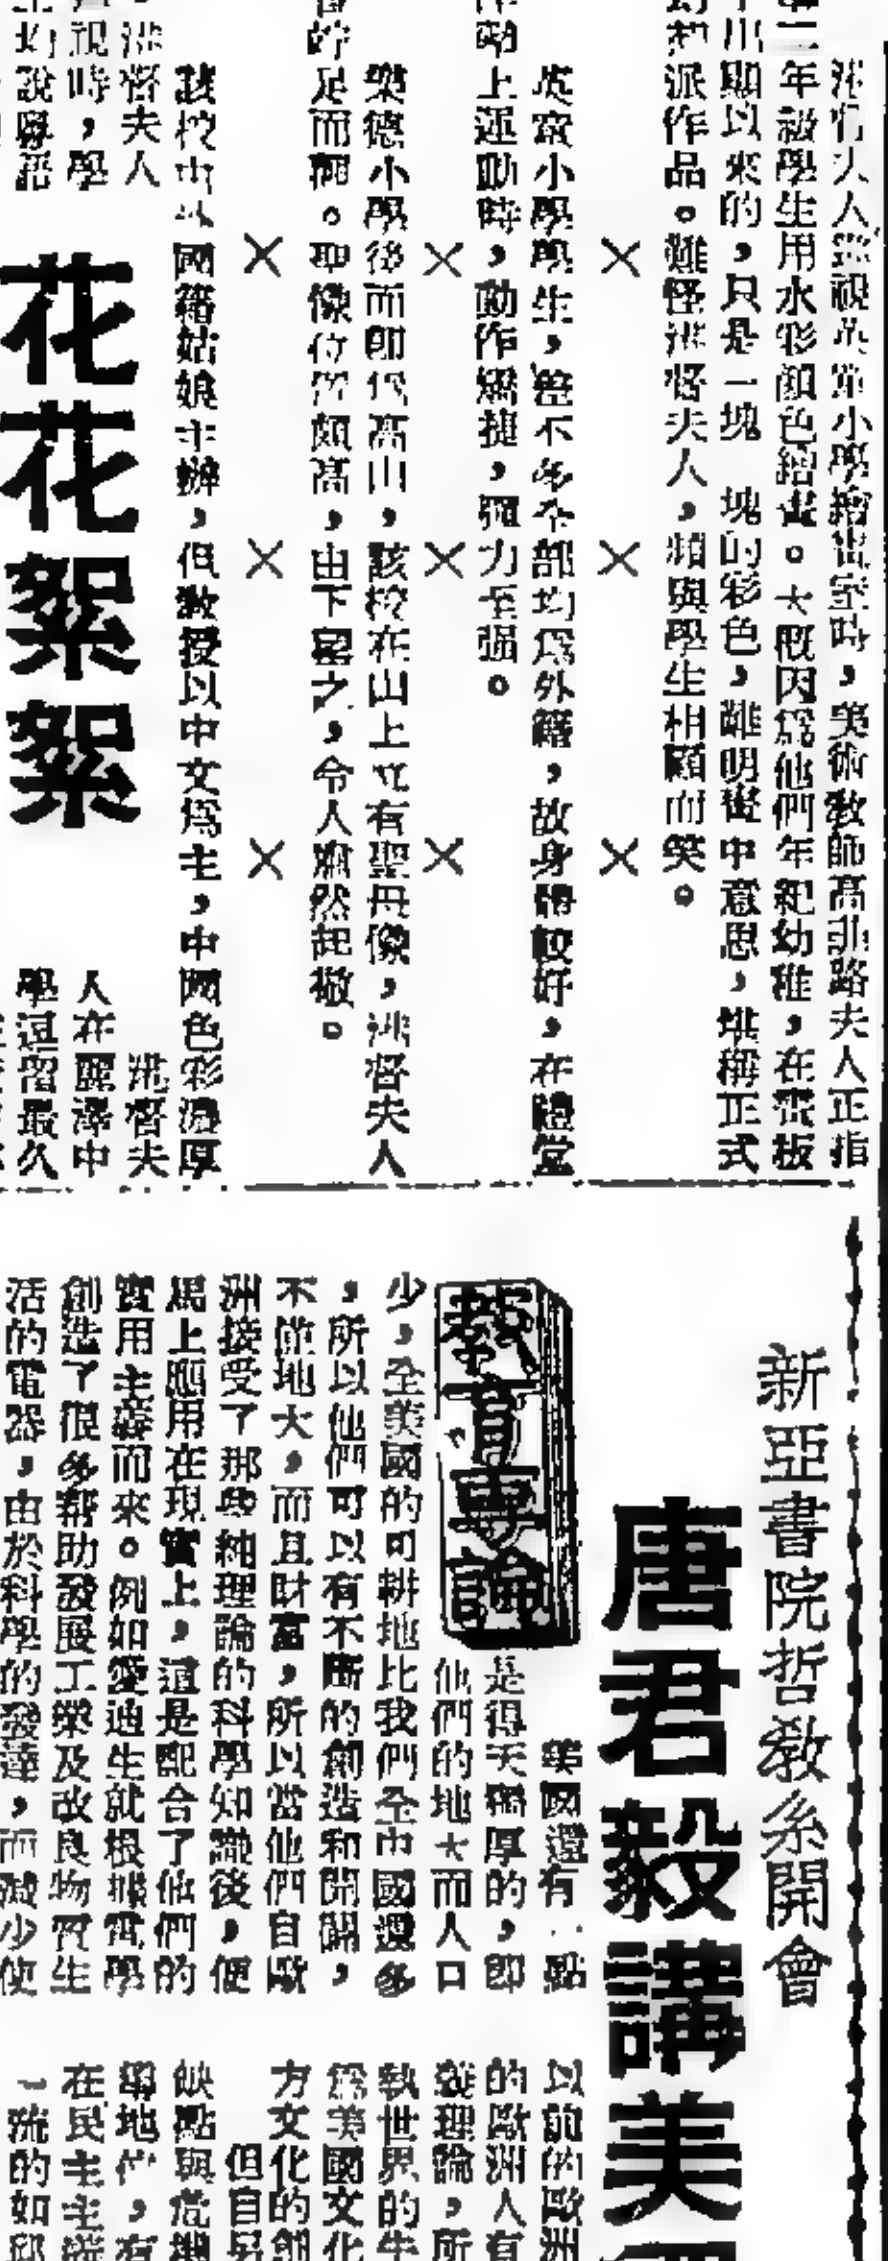 港督夫人巡視英童小學繪畫室時，美術教師高北路夫人正指
年級學生用水彩顏色繪畫。大概因爲他們年紀幼稚，在畫板
顯以來的，只是一塊 塊的彩色，難明畫中意思，堪稱正式
派作品。難怪港督夫人，頻與學生相顧而笑。
× × ×
英童小學學生，差不多全部均爲外籍，故身體較好，在禮堂
上運動時，動作矯捷，彈力至強。
× × ×
樂德小學後面即爲高山，該校在山上立有聖母像，港督夫人
足而觀。聖像位置頗高，由下望之，令人肅然起敬。
× × ×
該校由 國籍姑娘主辦，但教授以中文爲主，中國色彩濃厚
港督夫人
視時，學
均說粵語
花花絮絮
港督夫
人在麗澤中
學逗留最久
新亞書院哲教系開會
唐君毅講美
教育專論
美國還有一點
是得天獨厚的，即
他們的地大而人口
少，全美國的可耕地比我們全中國還多
，所以他們可以有不斷的創造和開闢，
不僅地大，而且財富，所以當他們自歐
洲接受了那些純理論的科學知識後，便
馬上應用在現實上，這是配合了他們的
實用主義而來。例如愛迪生就根據電學
創造了很多幫助發展工業及改良物質生
活的電器，由於科學的發達，而減少使
以前的歐洲
的歐洲人有
理論，所
執世界的牛
爲美國文化
方文化的創
但自另
缺點與危機
地位，有
在民主主義
一流的如邱